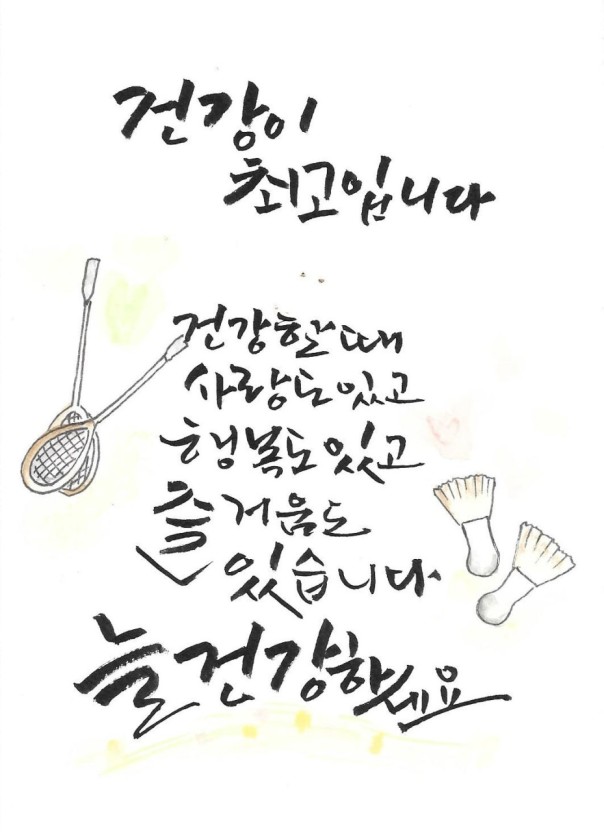 건강이
최고입니다
건강할 때
사랑도 있고
행복도 있고
즐거움도
있습니다
늘 건강하세요